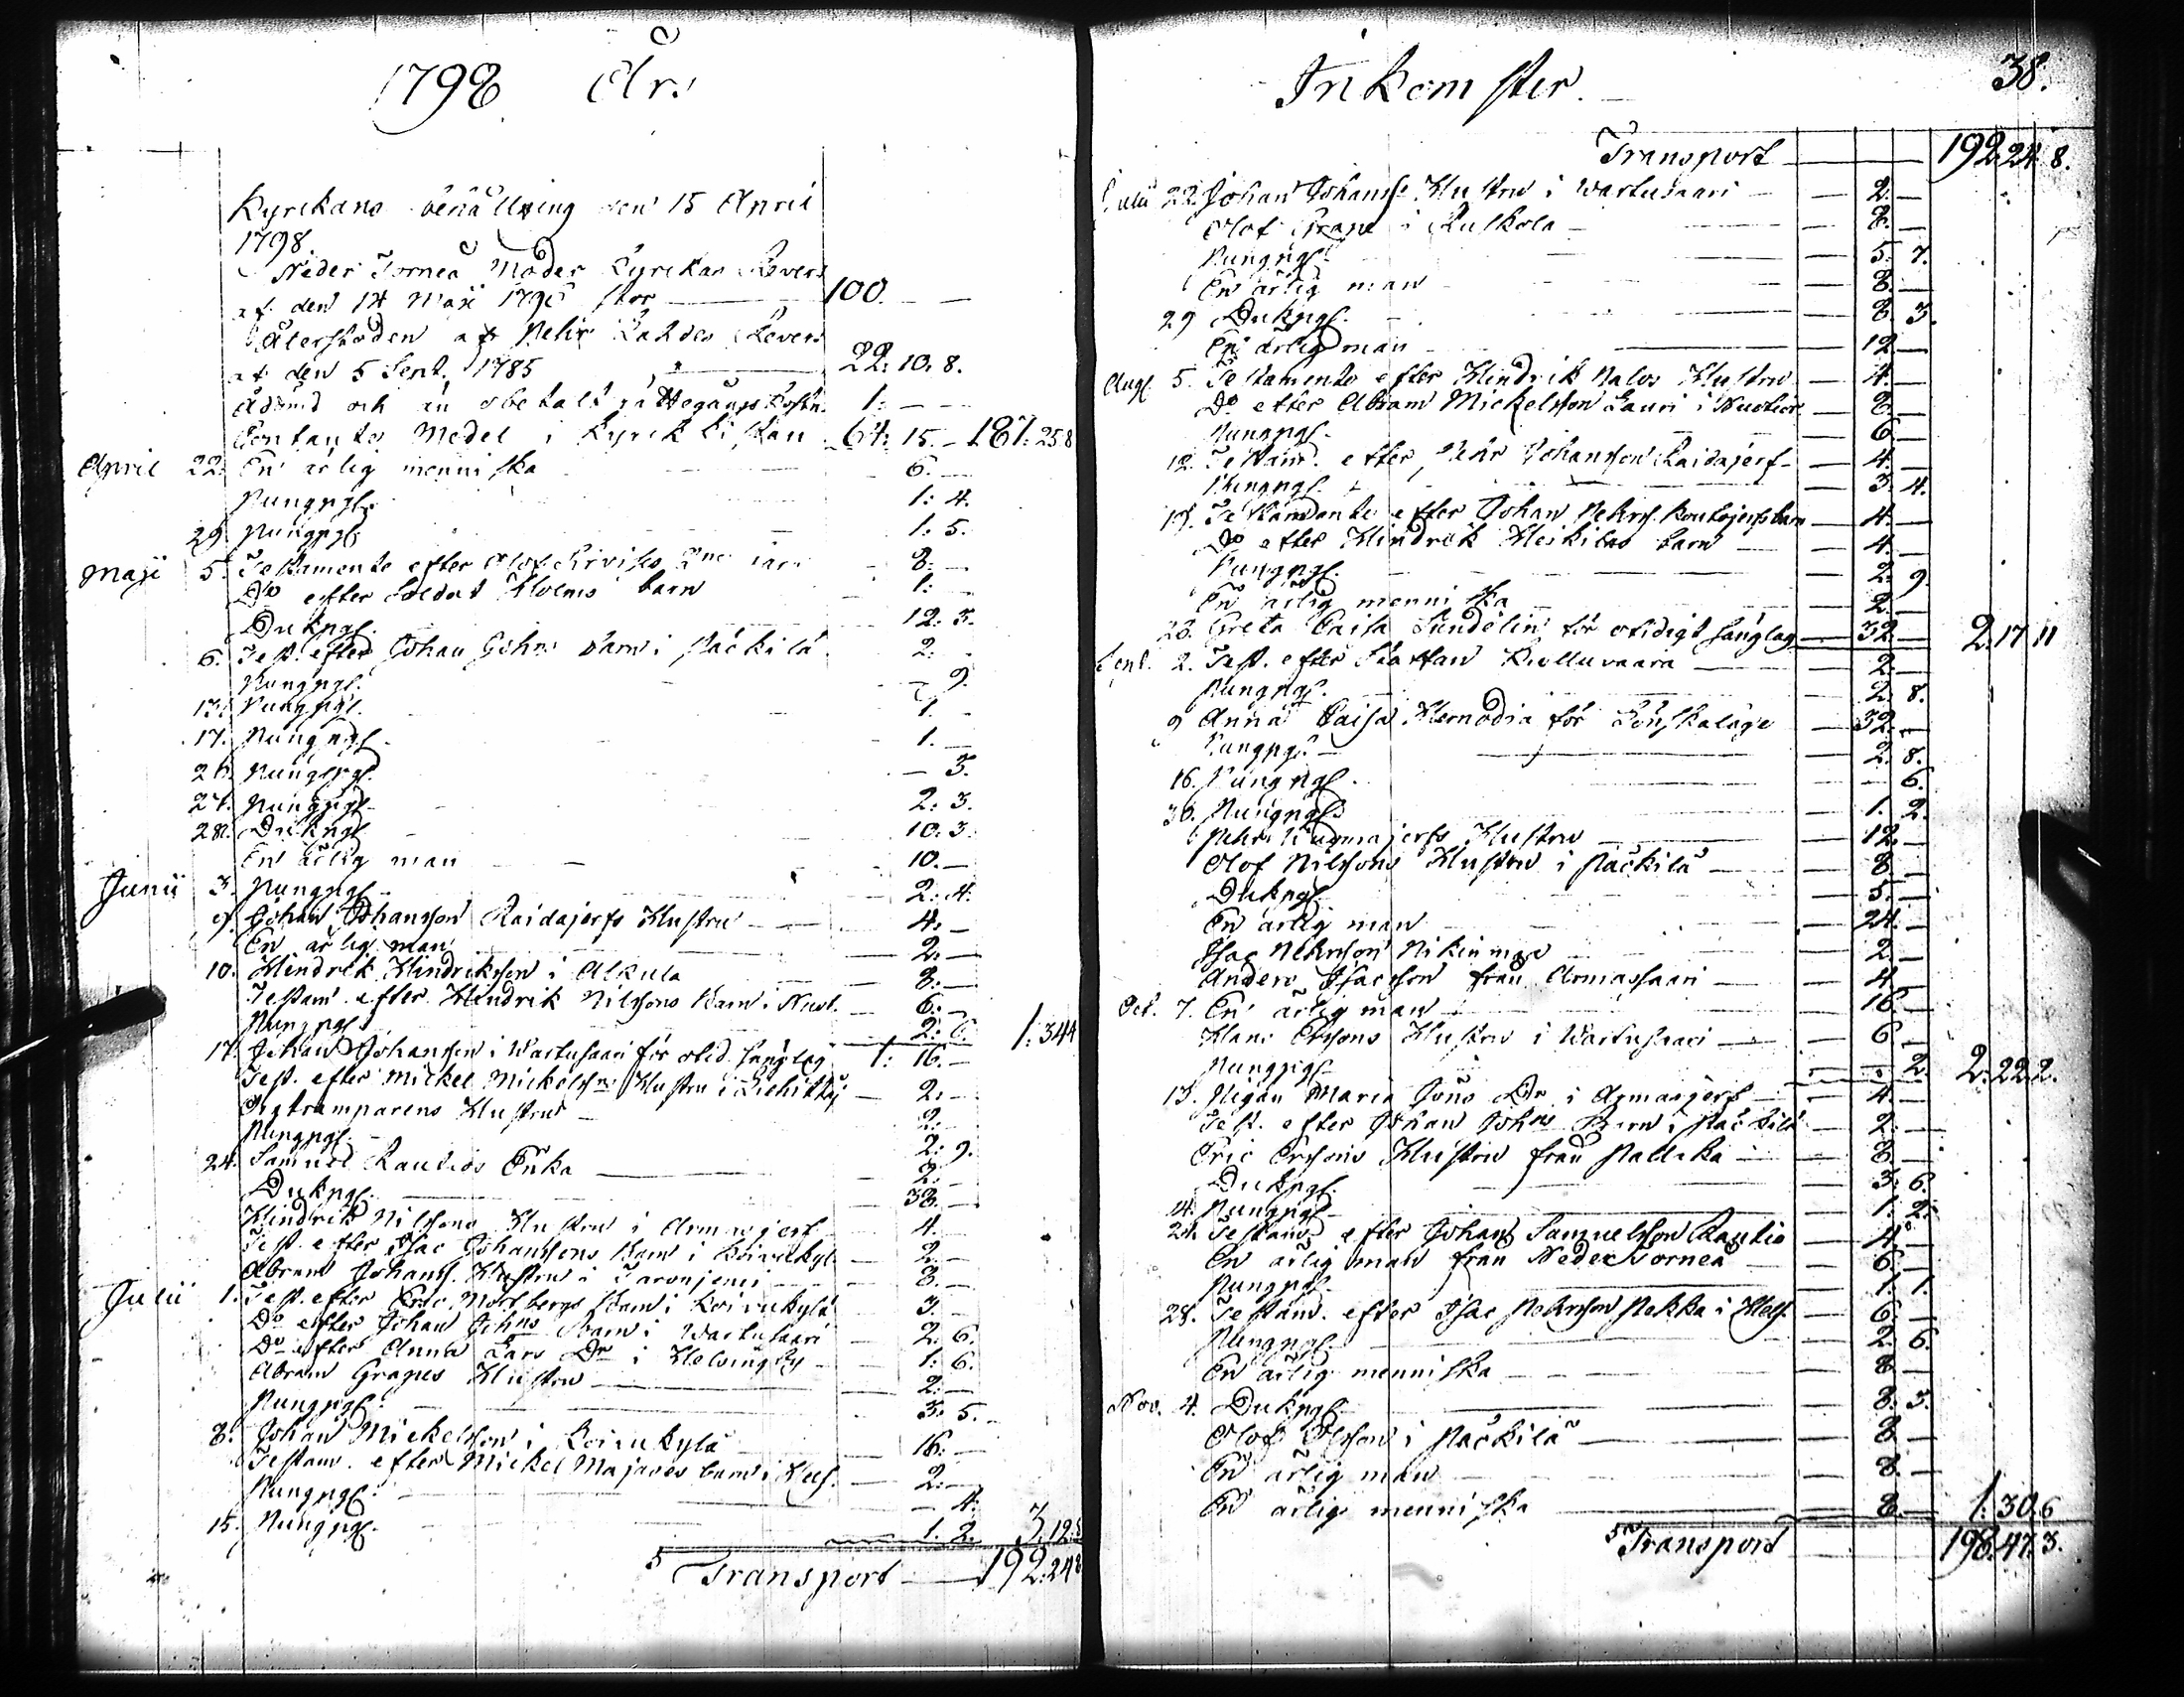 1798 Års
Kyrkans behållning den 15 April
1798.
Neder Torneå Moder Kyrckas Revers
af den 14 Maji 1796 stor 100. — —
Återstoden af Pehr Lahdes Revers
af den 5 Sept. 1785 22: 10. 8.
Ådömd och än obetalt rättegångs kostn. 1: — —
Contanta Medel i Kyrck Kistan 64: 15. — 187: 25 8
April 22. En ärlig menniska 6. —
Pungpgr. 1: 4.
29. Pungpgr. 1: 5.
Maji 5. Testamente efter Olof barn 8: —
Do efter Soldat Holms barn 1: —
Dukpgr. 12: 3.
6. Test. efter Johan Johns barn i Päckilä 2: —
Pungpgr. — 9.
13. Pungpgr. 1. —
17. Pungpgr. 1. —
26. Pungpgr. — 3.
27. Pungpgr. 2: 3.
28. Dukpgr. 10: 3.
En ärlig man 10. —
Junii 3. Pungpgr. 2: 4.
9. Johan Johansson Raidajerfs Hustru 4: —
En ärlig man 2: —
10. Hindrik Hindriksson i Alkula 8: —
Testam. efter Hindrik Nilssons barn i 6: —
Pungpgr. 2: 6. 1: 34 4
17. Johan Johansson i Wartusaari för olid. sänglag 1: 16. —
Test. efter Mickel Mickelssons Hustru i 2: —
Orgtramparens Hustru 2: —
Pungpgr. 2: 9.
24. Samuel Rautios Enka 2: —
Dukpgr. 38. —
Hindrik Nilssons Hustru i Armasjerf 4. —
Test. efter Isac Johanssons barn i Koivukyl. 2: —
Abram Johanss. Hustru i 8: —
Julii 1. Test. efter Eric Mosbergs barn i Koivukylä 3. —
Do efter Johan Johns barn i Wartusaari 2: 6.
Do efter Anna Lars Dr i Helsingby 1: 6.
Abram Grapes Hustru 2: —
Pungpgr. 3: 5.
8. Johan Mickelsson i Koivukylä 16: —
Testam. efter Mickel Majavas barn i Hels. 2: —
Pungpgr. — 4:
15. Pungpgr. 1. 2. 3. 12: 8
Transport 192: 24 8
Inkomster. 38.
Transport 192. 24. 8.
Julii 22. Johan Johanss. Hustru i Wartusaari 2. —
Olof Grape i Kulkola 8. —
Pungpgr. 5. 7.
En ärlig man 8. —
29 Dukpgr. 8. 3.
En ärlig man 12. —
Aug. 5. Testamente efter Hindrik Palos Hustru 4. —
Do efter Abram Mickelsson Lauri i 8. —
Pungpgr. 6. —
12. Testam. efter Pehr Johansson Raidajerf 4. —
Pungpgr. 3. 4.
19. Testamente efter Johan Pehrs. barn 4. —
Do efter Hindrik Heikilas barn 4. —
Pungpgr. 2. 9
En ärlig menniska 2. —
26. Greta Caisa Sundelin för otidigt sänglag 32 — 2. 17 11
Sept. 2. Test. efter Staffan Kiolluvaara 2. —
Pungpgr. 2. 8.
9 Anna Caisa för Lönskaläge 32. —
Pungpgr. 2. 8.
16. Pungpgr. — 6.
30. Pungpgr. 1. 2.
Pehr Hustru 12. —
Olof Nilssons Hustru i Päckilä 8. —
Dukpgr. 5. —
En ärlig man 24. —
Isac Pehrsson Nikinmaa 2. —
Anders Isacsson från Armassaari 4. —
Oct. 7. En ärlig man 16. —
Hans Erssons Hustru i Wartusaari 6 —
Pungpgr. — 2. 2. 22. 2.
13. Pigan Maria Jöns Dr i Armasjerf 4. —
Test. efter Johan Johns Barn i Päckilä 2. —
Eric Erssons Hustru från 8 —
Dukpgr. 3. 6.
14. Pungpgr. 1. 2.
21. Testam. efter Johan Samuelsson Rautio 4. —
En ärlig man från Neder Torneå 6. —
Pungpgr. 1. 1.
28. Testam. efter Isac Pehrsson Pekka i Hels. 6. —
Pungpgr. 2. 6.
En ärlig menniska 8 —
Nov. 4. Dukpgr. 8. 3.
Olof Olsson i Päckilä 8 —
En ärlig man 8. —
En ärlig menniska 8. — 1: 30. 6
Transport 198. 47. 3.